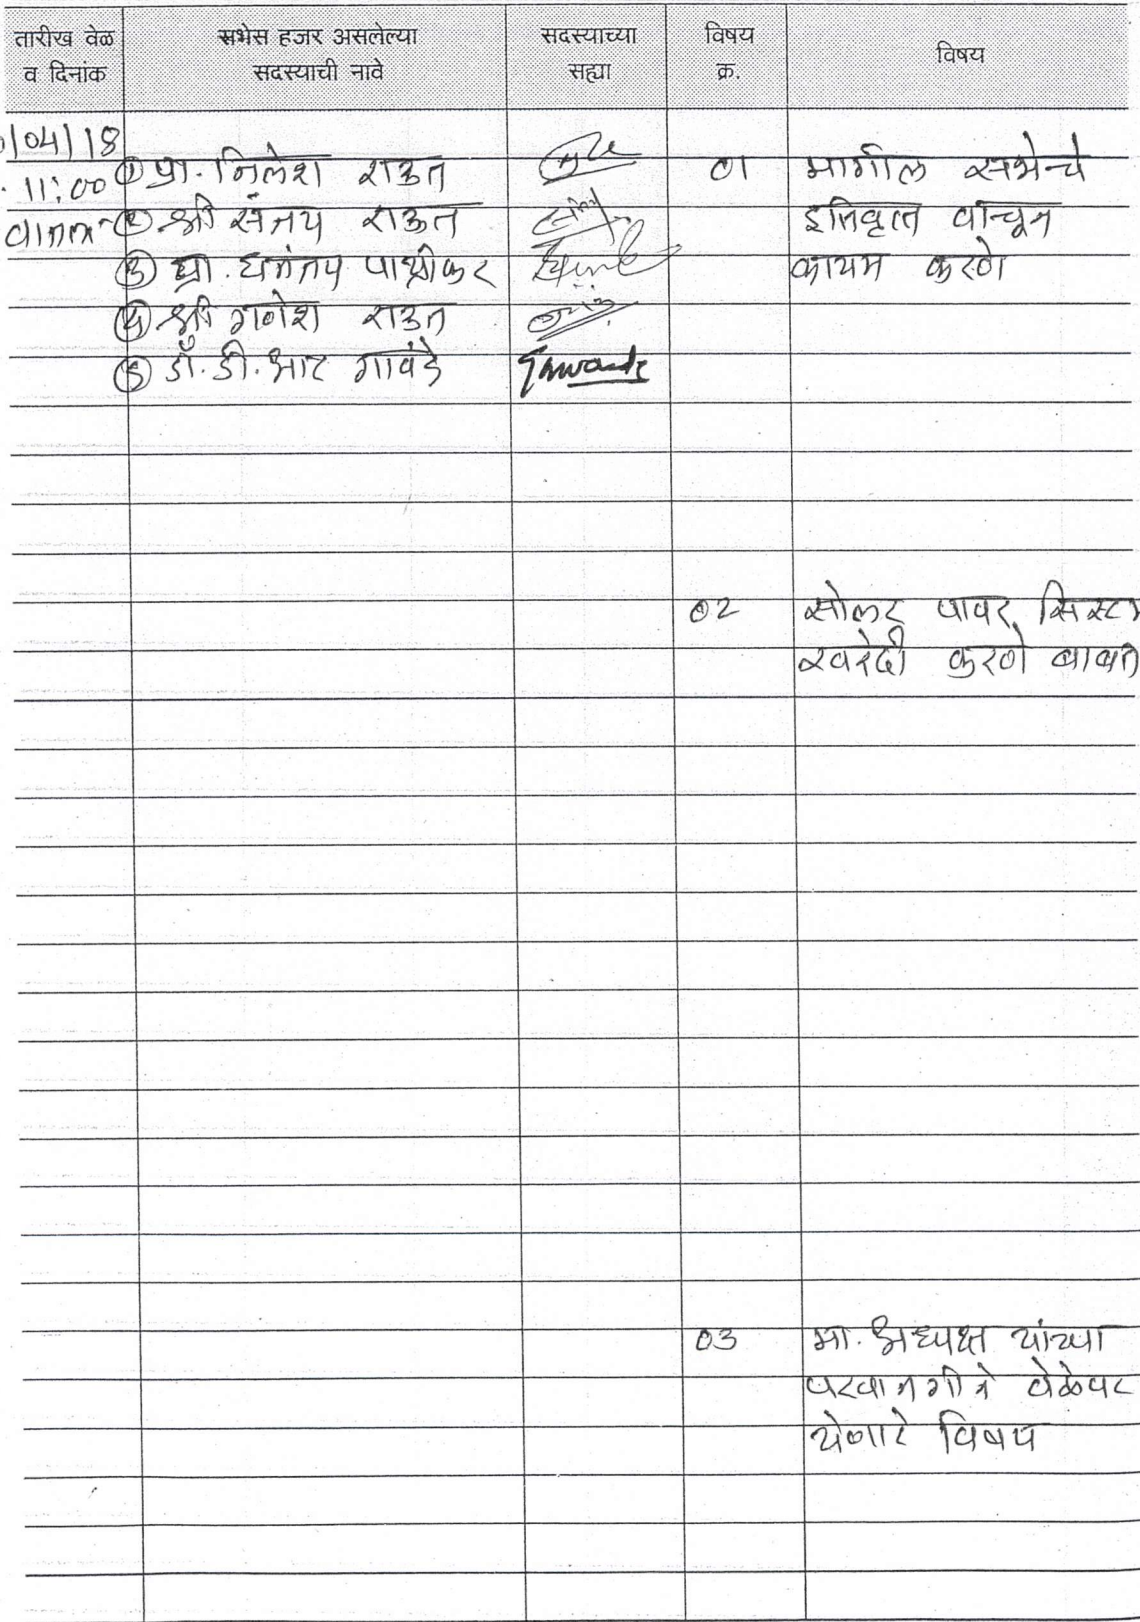 तारीख वेळ
व दिनांक
सभेस हजर असलेल्या
सदस्याची नावे
सदस्याच्या
सह्या
विषय
क्र.
विषय
/04/18
11:00
वाजता
① प्रा. निलेश राऊत
② श्री संजय राऊत
③ प्रा. धनंजय पाथ्रीकर
④ श्री गणेश राऊत
⑤ डॉ. डी. आर गावंडे
Gawande
01 मागील सभेचे
इतिवृत्त वाचून
कायम करणे
02 सोलर पावर सिस्टम
खरेदी करणे बाबत
03 मा. अध्यक्ष यांच्या
परवानगीने वेळेवर
येणारे विषय